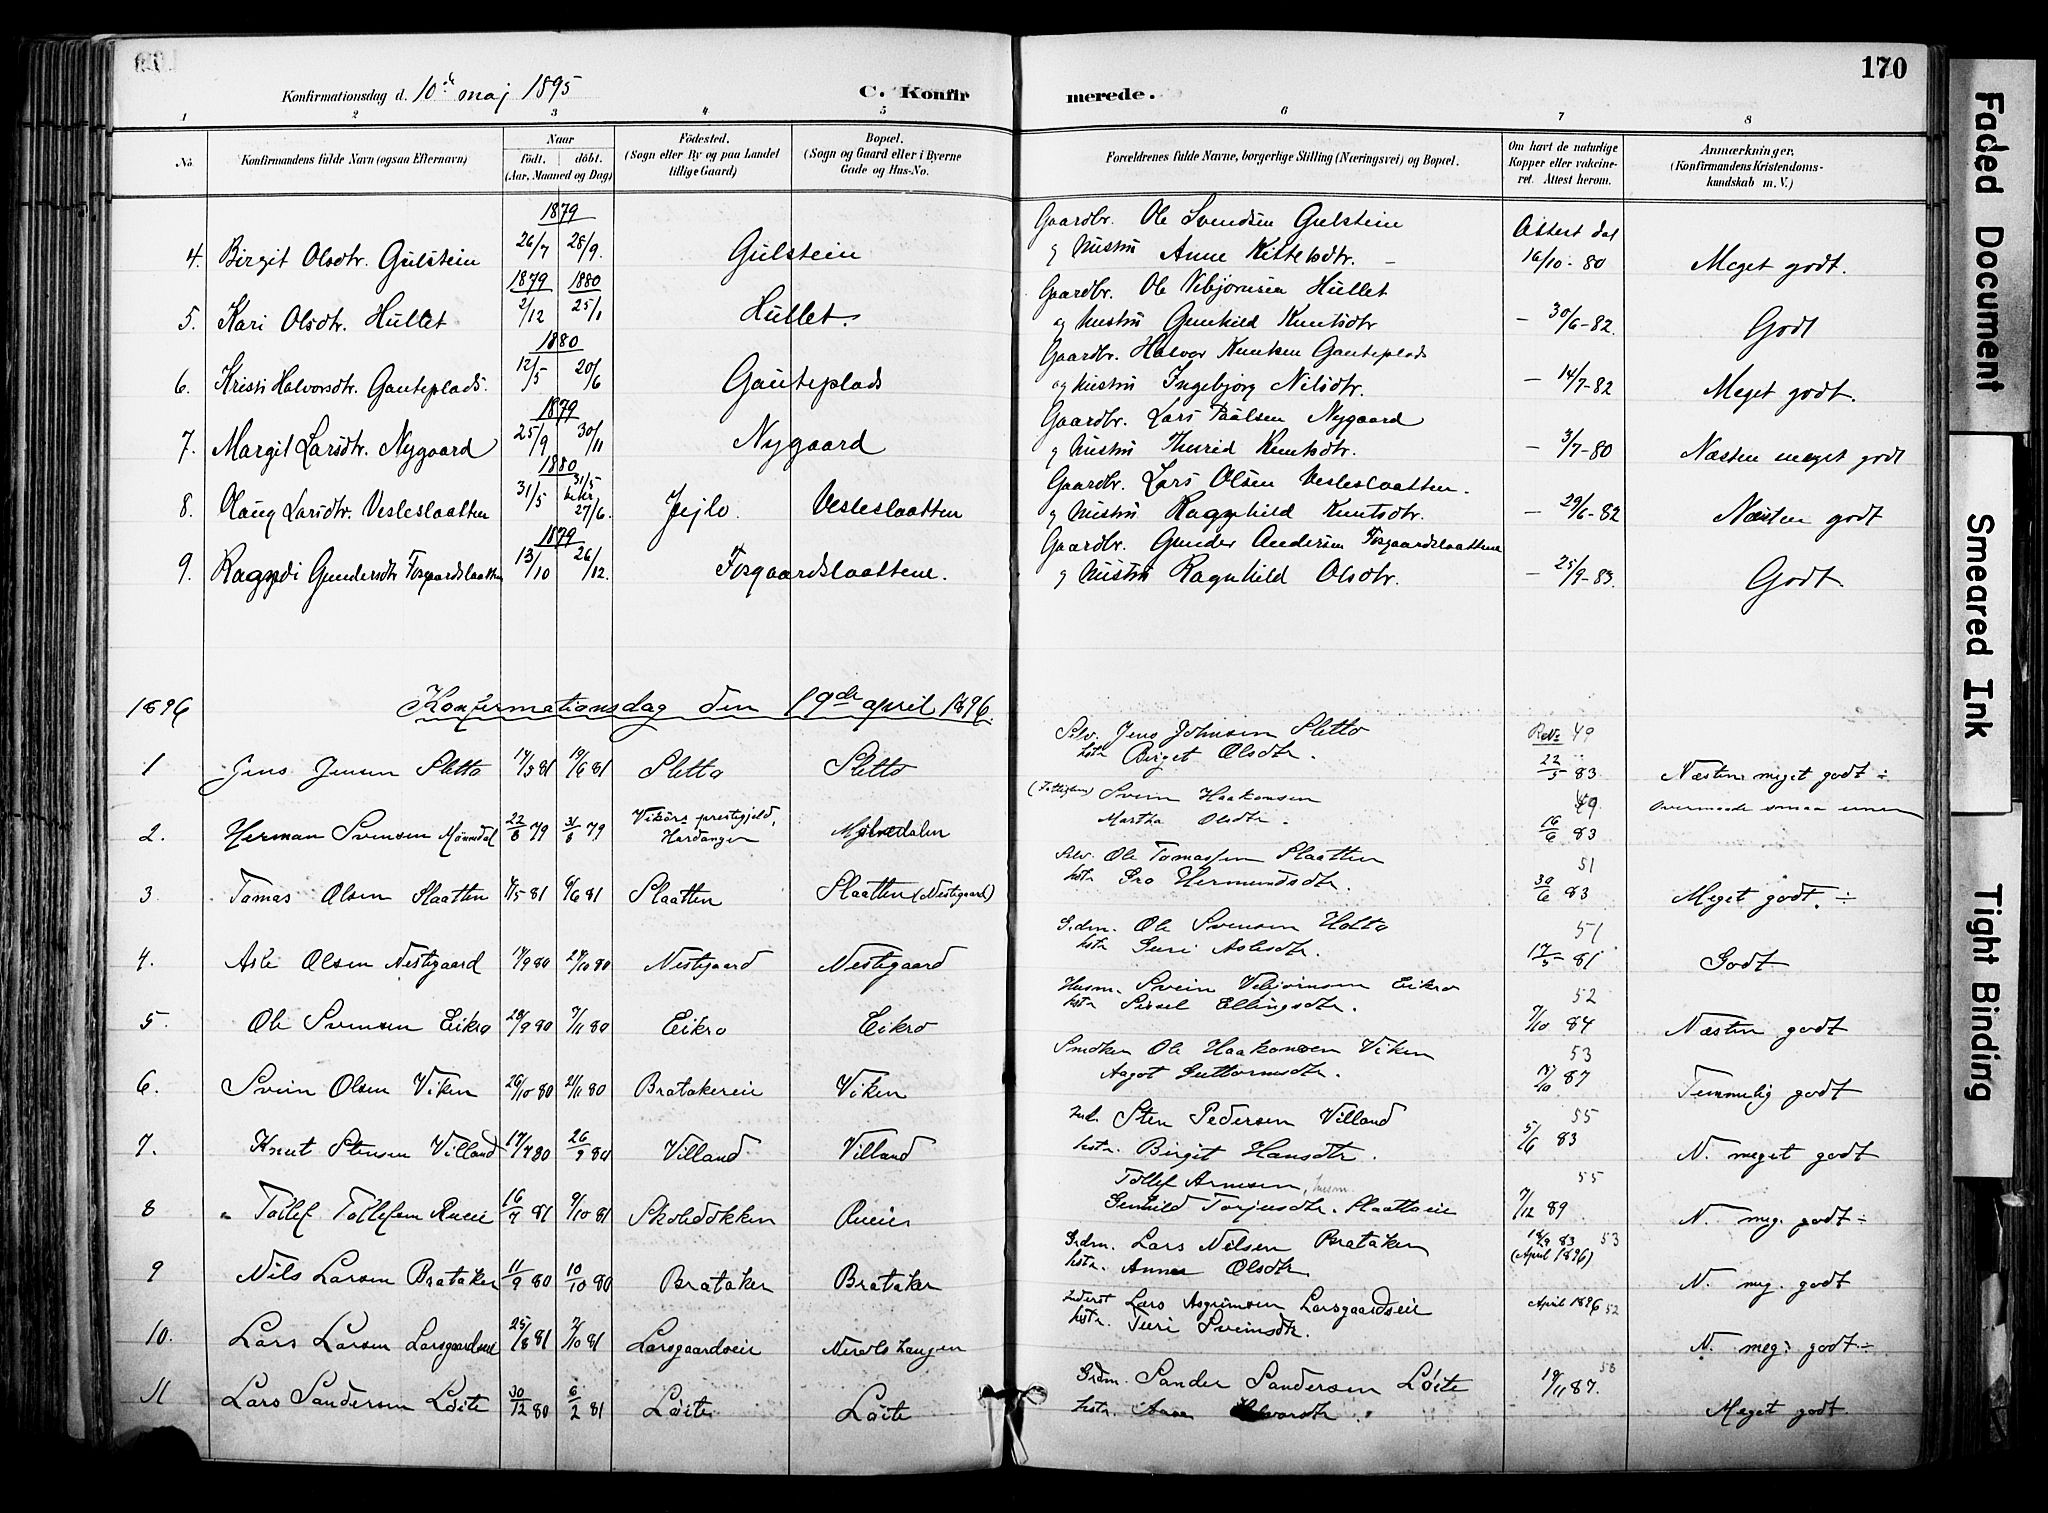 170
Konfirmationsdag d. 10de maj 1895 C. Konfirmerede.
1 2 3 4 5 6 7 8
No. Konfirmandens fulde Navn (ogsaa Efternavn) Naar født. døbt. (Aar, Maaned og Dag) Fødested. (Sogn eller By og paa Landet tillige Gaard) Bopæl. (Sogn og Gaard eller i Byerne Gade og Hus-No. Forældrenes fulde Navne, borgerlige Stilling (Næringsvei) og Bopæl. Om havt de naturlige Kopper eller vakcineret. Attest herom. Anmærkninger. (Konfirmandens Kristendomskundskab m. V.)
1879 Gaardbr. Ole Svendsen Gulstein Attest dat
4. Birgit Olsdtr. Gulstein 26/7 28/9. Gulstein og Hustru Anne Kittelsdtr. 16/10-80 Meget godt.
1879 1880 Gaardbr. Ole Vebjørnsen Hullet
5. Kari Olsdtr. Hullet 2/12 25/1 Hullet. og Hustru Gunhild Knutsdtr - 30/6-82. Godt
1880 Gaardbr. Halvor Knutsen Gauteplads
6. Kristi Halvorsdtr. Gauteplads. 12/5 20/6 Gauteplads og Hustru Ingebjørg Nilsdtr. - 14/7-82 Meget godt.
1879 Gaardbr. Lars Paalsen Nygaard
7. Margit Larsdtr. Nygaard 25/9 30/11 Nygaard og Hustru Thurid Knutsdtr. - 3/7-80 Næsten meget godt
1880 31/5 Gaardbr. Lars Olsen Vesleslaatten.
8. Olaug Larsdtr. Vesleslaatten 31/5 27/6. Jejlo. Vesleslaatten og Hustru Ragnhild Knutsdtr. - 29/6-82 Næsten godt
1879 Gaardbr. Gunder Andersen Fosgaardslaattene
9. Ragndi Gundersdtr Fosgaardslaatten 13/10 26/12. Fosgaardslaattene. og Hustru Ragnhild Olsdtr. - 25/9-83. Godt.
1896 Konfirmationsdag den 19de april 1896.
Selv. Jens Johnsen Sletto 49
1 Jens Jensen Sletto 17/3 81 19/6 81 Sletto Sletto hstr Birget Olsdtr. 22/5 83. Næsten meget godt ÷
Svein Haakonsen 49. overmaade smaa evner
2. Herman Svensen Mønndal 22/8 79 31/8 79 Vikörs prestegjeld, Hardanger Martha Olsdtr. 16/6 83
Selv. Ole Tomassen Slaatten 51
3 Tomas Olsen Slaatten 4/5 81 6/6 81 Slaatten Slaatten (Nestegaard) hstr Gro Hermundsdtr. 30/6 83 Meget godt. ÷
Grdm. Ole Svensen Holto 51
4. Asle Olsen Nestegaard 14/9 80 24/10 80 Nestegaard Nestegaard hstr Guri Aslesdtr. 17/5-81 Godt
Husm. Svein Vebjørnsen Eikro 52
5. Ole Svensen Eikro 28/9 80 7/11 80 Eikro Eikro hstr Sissel Ellingsdtr. 7/10 84 Næsten godt
Snedker Ole Haakonsen Viken 53
6. Svein Olsen Viken 26/10 80 21/11 80 Bratakereie Viken Aagot Guttormsdtr. 7/10 87 Temmelig godt
Sten Pedersen Villand 55
7. Knut Stensen Villand 17/7 80 26/9 80 Villand Villand hstr. Birgit Hansdtr. 5/6 83 N. meget godt
Tollef Arnesen, husm. 55
8 Tollef Tollefsen Rueie 16/7 81 9/10 81 Skoleddkken Rueie Gunhild Torjusdtr. Slaatteeie 7/12 89 N. meg. godt ÷
Grdm. Lars Nilsen Brataker 18/9 83 53
9 Nils Larsen Brataker 11/9 80 10/10 80 Brataker Brataker hstr. Anne Olsdtr (April 1896) N. meg. godt
Lars Asgrimsen Larsgaardseie April 1896 52
10. Lars Larsen Larsgaardseie 25/8 81 2/10 81 Larsgaardseie Nerols haugen hstr. Turi Sveinsdtr. N. meg. godt ÷
Grdm. Sander Sandersen Løite 53
11 Lars Sandersen Løite 30/12 80 6/2 81 Løite Løite hstr. Aase Halvorsdtr. 19/11 87. Meget godt.
Faded Document
Smeared Ink
Tight Binding